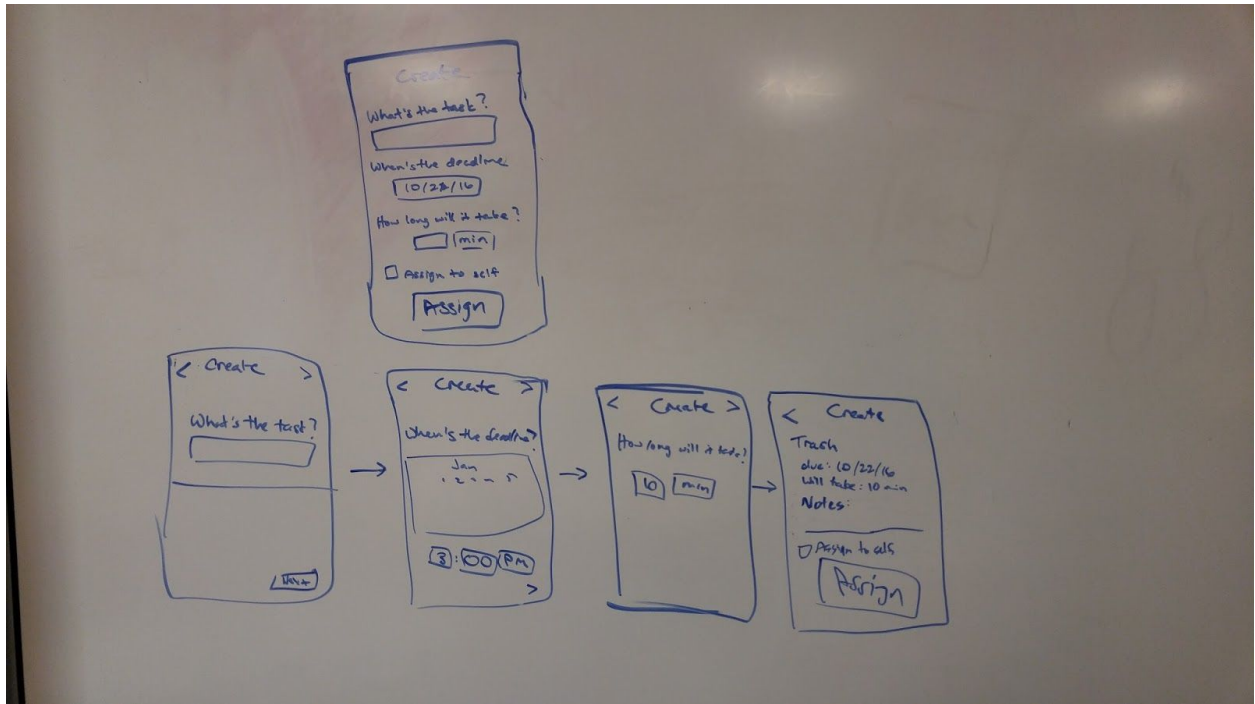 Create
What's the task?
When's the deadline
10/22/16
How long will it take?
min
Assign to self
Assign
< Create >
What's the task?
Next
< Create >
When's the deadline?
Jan
3:00 PM
>
< Create >
How long will it take?
10 min
< Create
Trash
due: 10/22/16
will take: 10 min
Notes:
Assign to
Assign